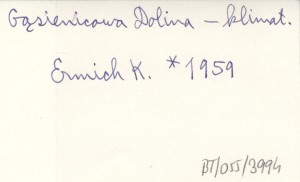 Gąsienicowa Dolina – klimat.
Ermich K. * 1959
BT/055/3994